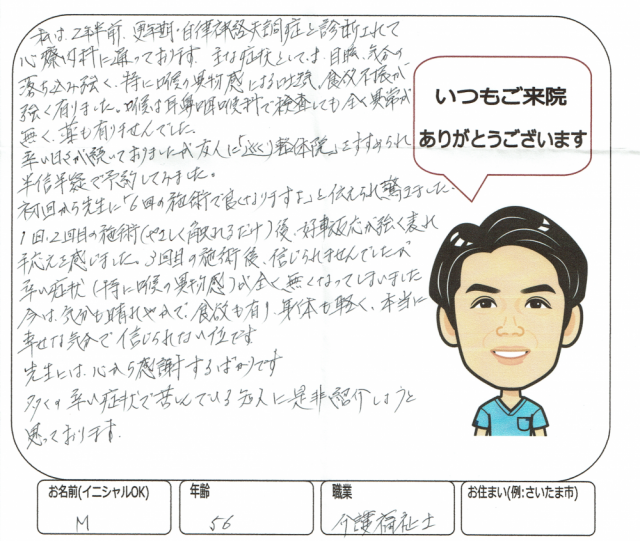 私は、2年半前、更年期・自律神経失調症と診断されて
心療内科に通っております。主な症状としては、目眩、気分の
落ち込み強く、特に喉の異物感による吐気、食欲不振が
強く有りました。喉は耳鼻咽喉科で検査しても全く異常が
無く、薬も有りませんでした。
辛い日々が続いておりましたが友人に「巡り整体院」をすすめられ
半信半疑で予約してみました。
初回から先生に「6回の施術で良くなりますよ」と伝えられ驚きました。
1回、2回目の施術(やさしく触れるだけ)後、好転反応が強く表れ
手応えを感じました。3回目の施術後、信じられませんでしたが
辛い症状(特に喉の異物感)が全く無くなってしまいました
今は、気分も晴れやかで、食欲も有り、身体も軽く、本当に
幸せな気分で信じられない位です
先生には、心から感謝するばかりです
多くの辛い症状で苦しんでいる知人に是非紹介しようと
思っております。
いつもご来院
ありがとうございます
お名前(イニシャルOK)
M
年齢
56
職業
介護福祉士
お住まい(例:さいたま市)